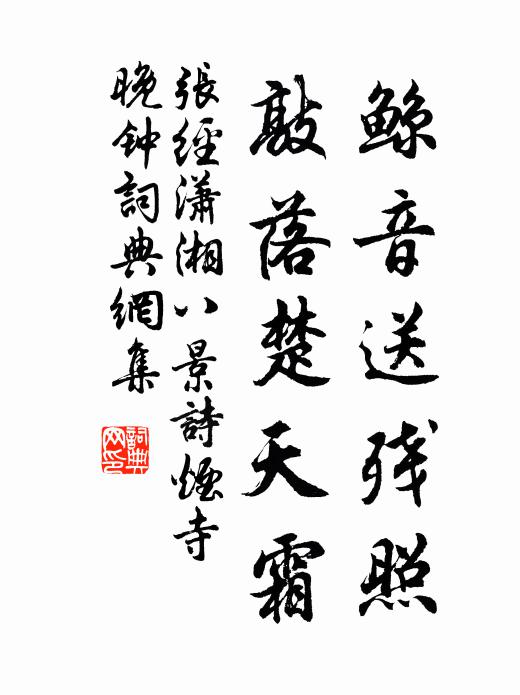 鲸音送残照
敲落楚天霜
張經瀟湘八景詩煙寺
晚钟詞典網集
詞典網印